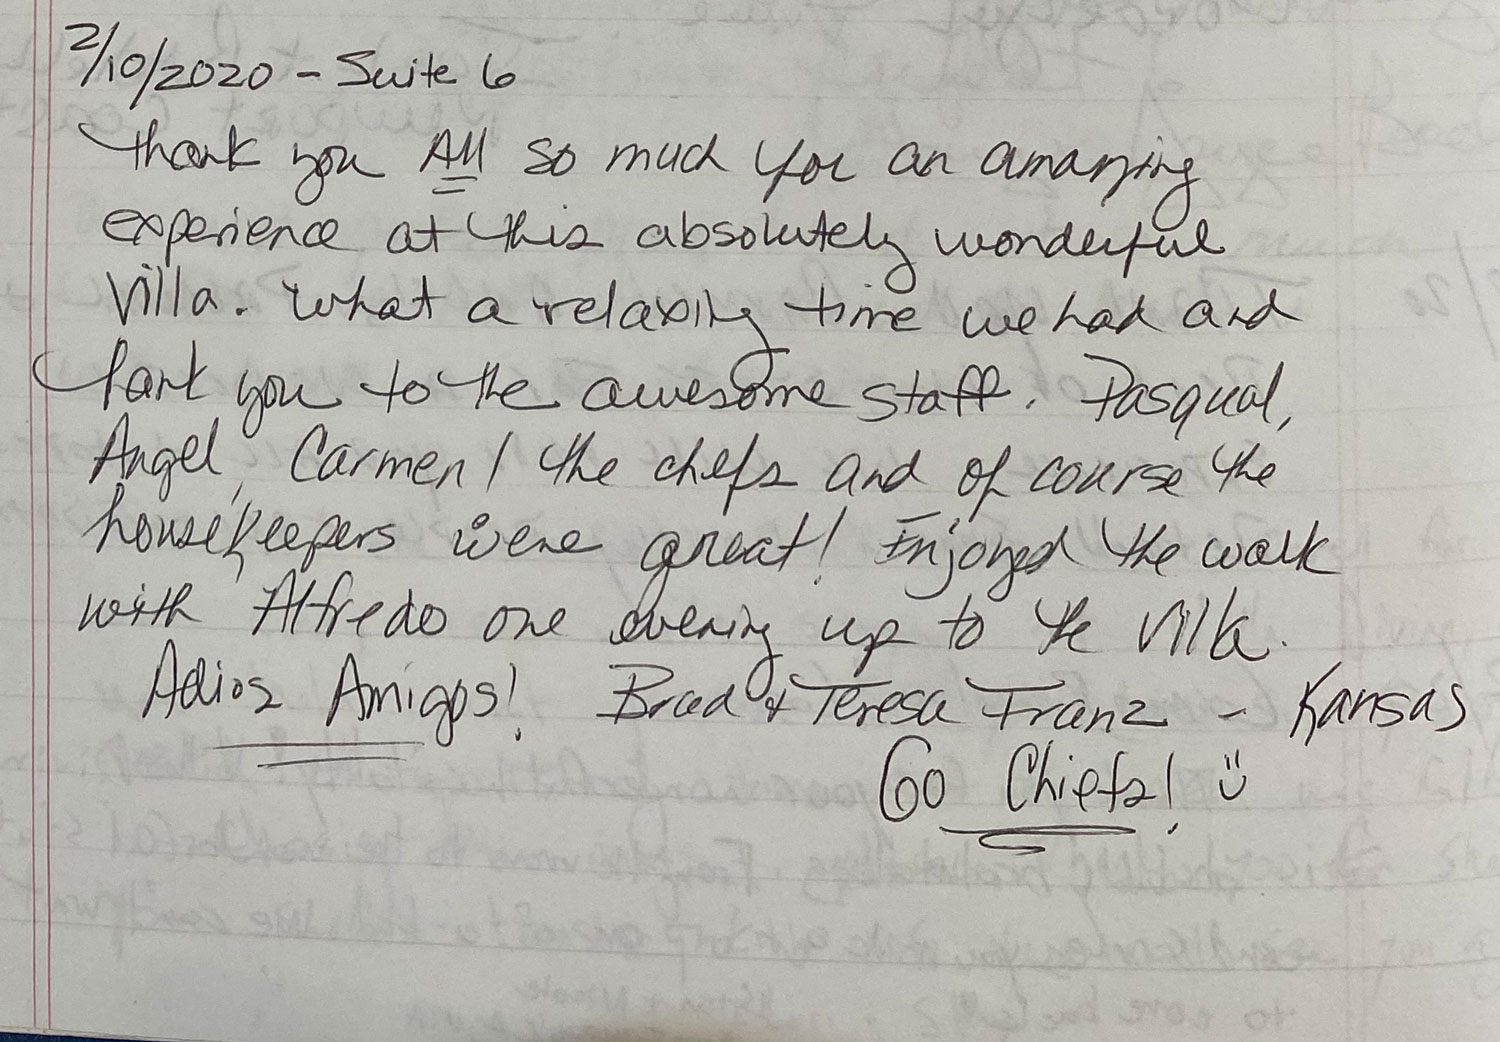 2/10/2020 - Suite 6
thank you All so much for an amazing
experience at this absolutely wonderful
Villa. What a relaxing time we had and
thank you to the awesome staff. Pasqual,
Angel, Carmen / the chefs and of course the
housekeepers were great! Enjoyed the walk
with Alfredo one evening up to the Villa.
Adios Amigos! Brad & Teresa Franz - Kansas
Go Chiefs! :)